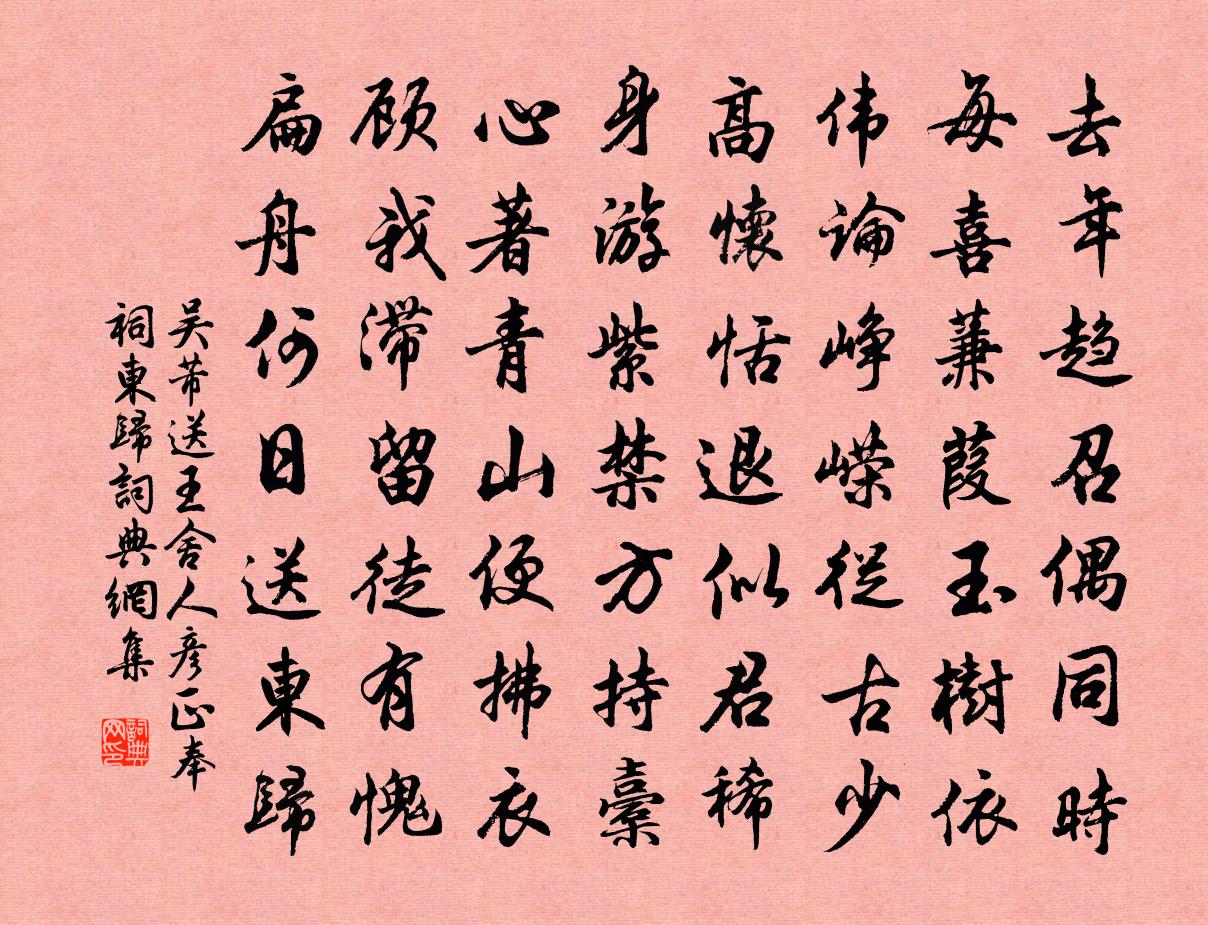 去年趋召偶同時
每喜蒹葭玉樹依
伟論峥嵘從古少
高懷恬退似君稀
身游紫禁方持橐
心著青山便拂衣
顾我滞留徒有愧
扁舟何日送東歸
吴芾送王舍人彦正奉
祠東歸詞典網集
詞典
网印